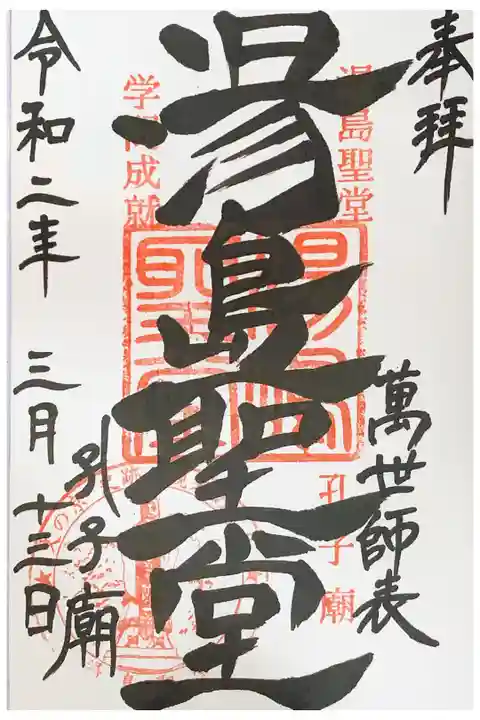 奉拝
萬世師表
湯島聖堂
孔子廟
湯島聖堂
学問成就
孔子廟
令和二年
三月
十三日